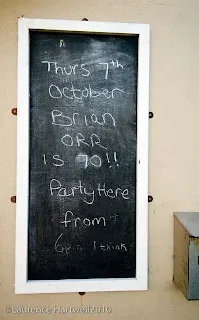 Thurs 7th
October
Brian
ORR
IS 70!!
Party Here
from
6pm I think
©Laurence Hartwell2010